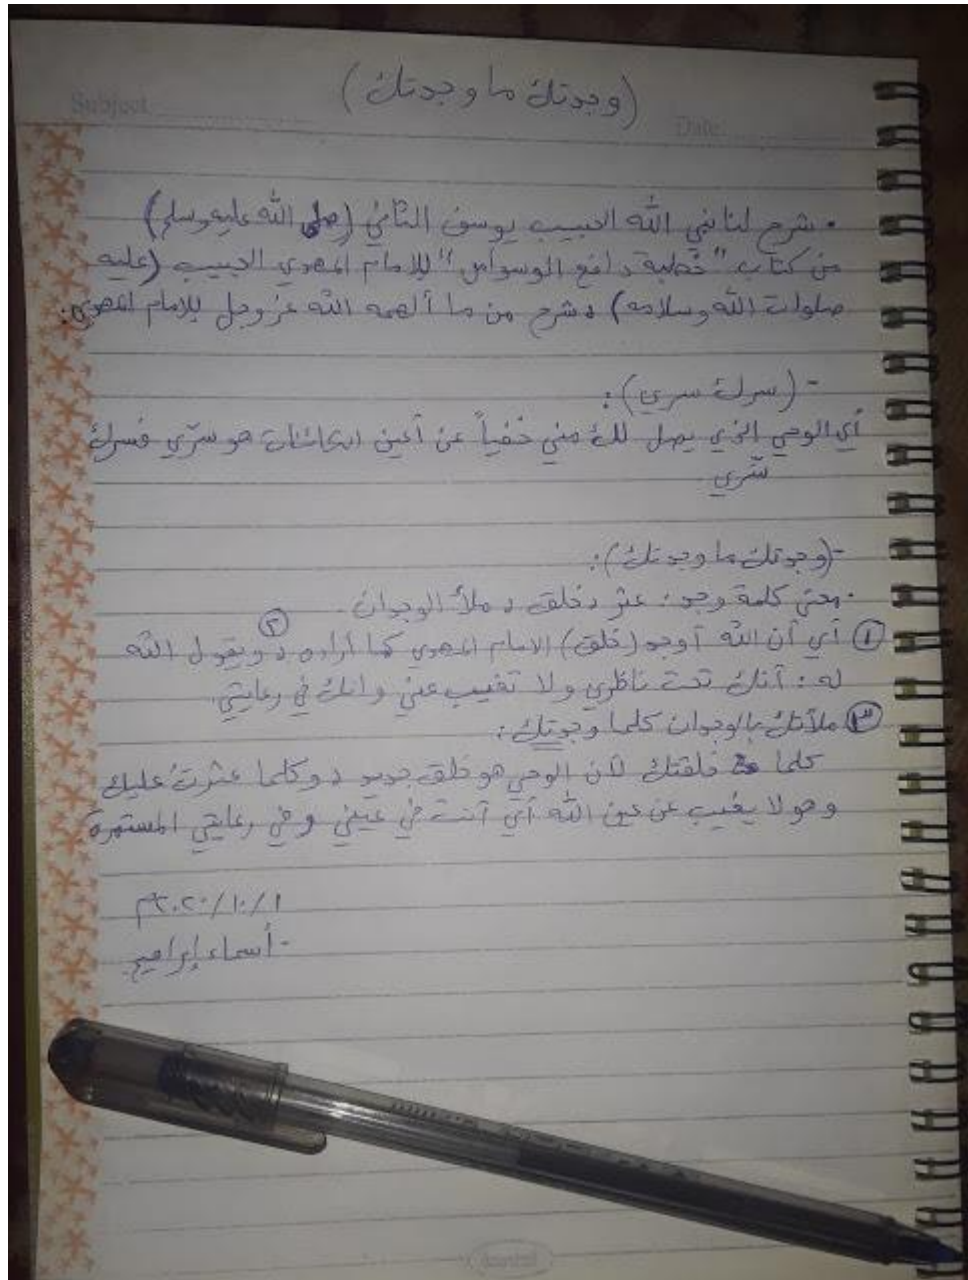 Subject
Date:
(وجدتك ما وجدتك)
• شرح لنا نبي الله الحبيب يوسف الثاني (صلى الله عليه وسلم)
من كتاب "خطبة دافع الوسواس" للإمام المهدي الحبيب (عليه
صلوات الله وسلامه) ، شرح من ما ألهمه الله عز وجل للإمام المهدي:
- (سرك سري):
أي الوحي الذي يصل لك مني خفياً عن أعين الكائنات هو سرّي فسرك
سّري
-(وجدتك ما وجدتك):
• معنى كلمة وجد: عثر ، خلق ، ملأ الوجدان.
① أي أن الله أوجد (خلق) الامام المهدي كما أراده ، ② ويقول الله
له: أنك تحت ناظري ولا تغيب عني وانك في رعايتي.
③ ملأتك بالوجدان كلما وجدتك:
كلما خلقتك لأن الوحي هو خلق جديد ، وكلما عثرتُ عليك
وهو لا يغيب عن عين الله أي أنت في عيني وفي رعايتي المستمرة
٢٠٢٠/١٠/١م
- أسماء إبراهيم